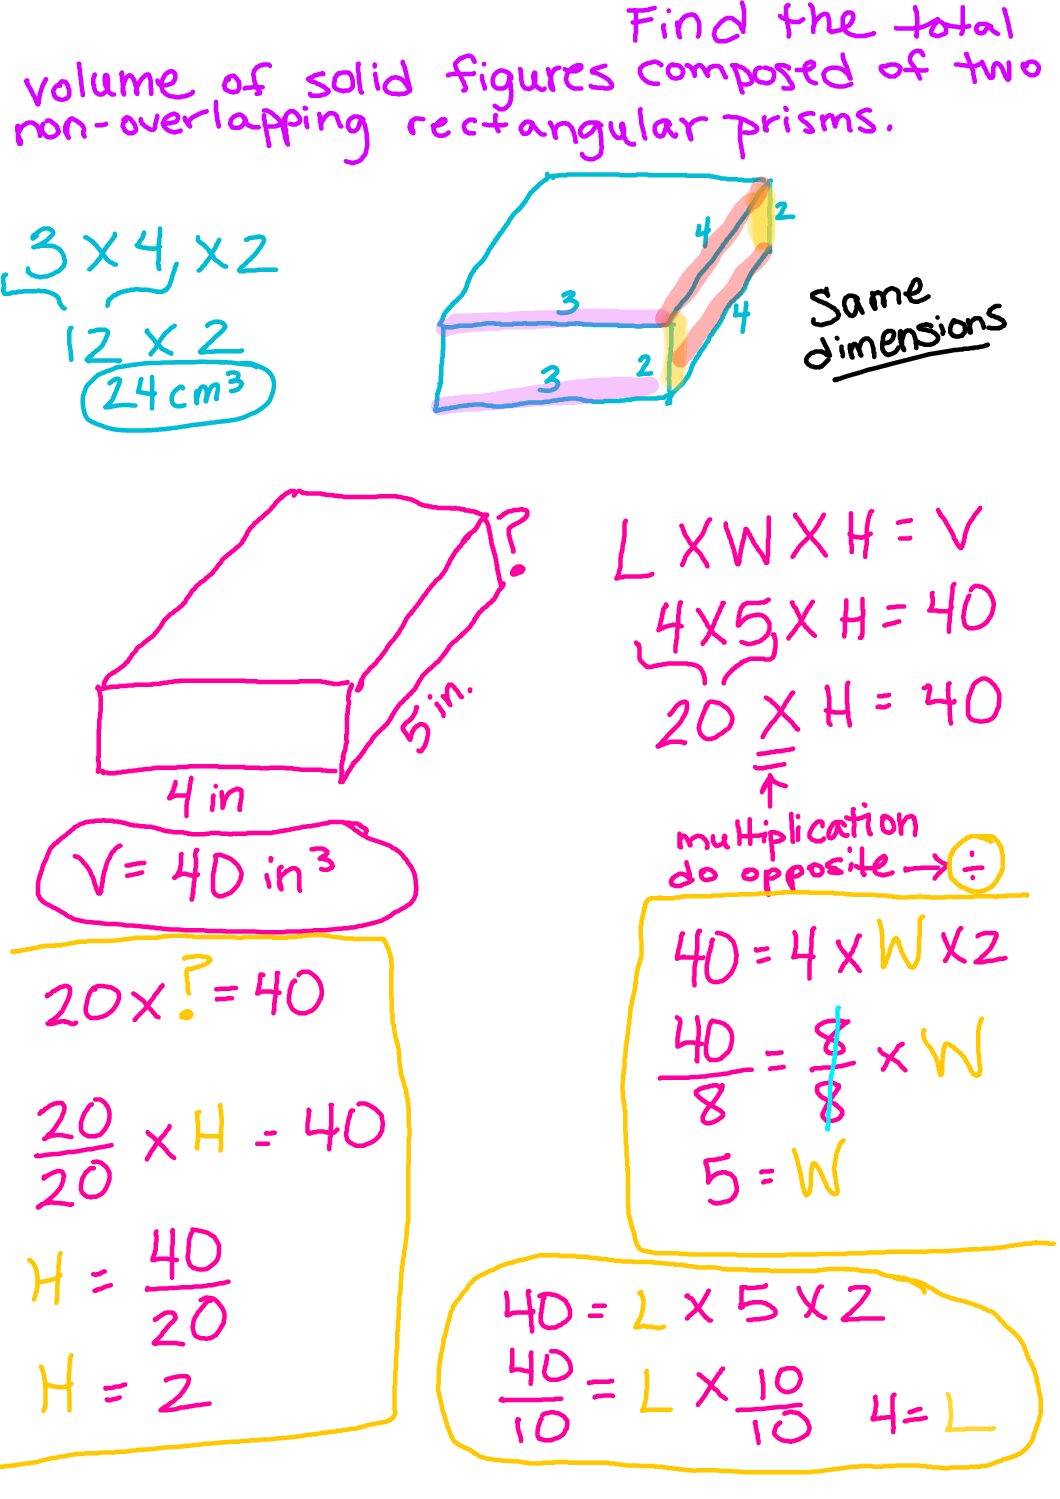 Find the total
volume of solid figures composed of two
non-overlapping rectangular prisms.
3 x 4 x 2
12 x 2
24 cm³
3
4
2
3
2
4
Same
dimensions
?
5 in.
4 in
V = 40 in³
L x W x H = V
4 x 5 x H = 40
20 x H = 40
multiplication
do opposite → ÷
20 x ? = 40
20/20 x H = 40
H = 40/20
H = 2
40 = 4 x W x 2
40/8 = 8/8 x W
5 = W
40 = L x 5 x 2
40/10 = L x 10/10
4 = L